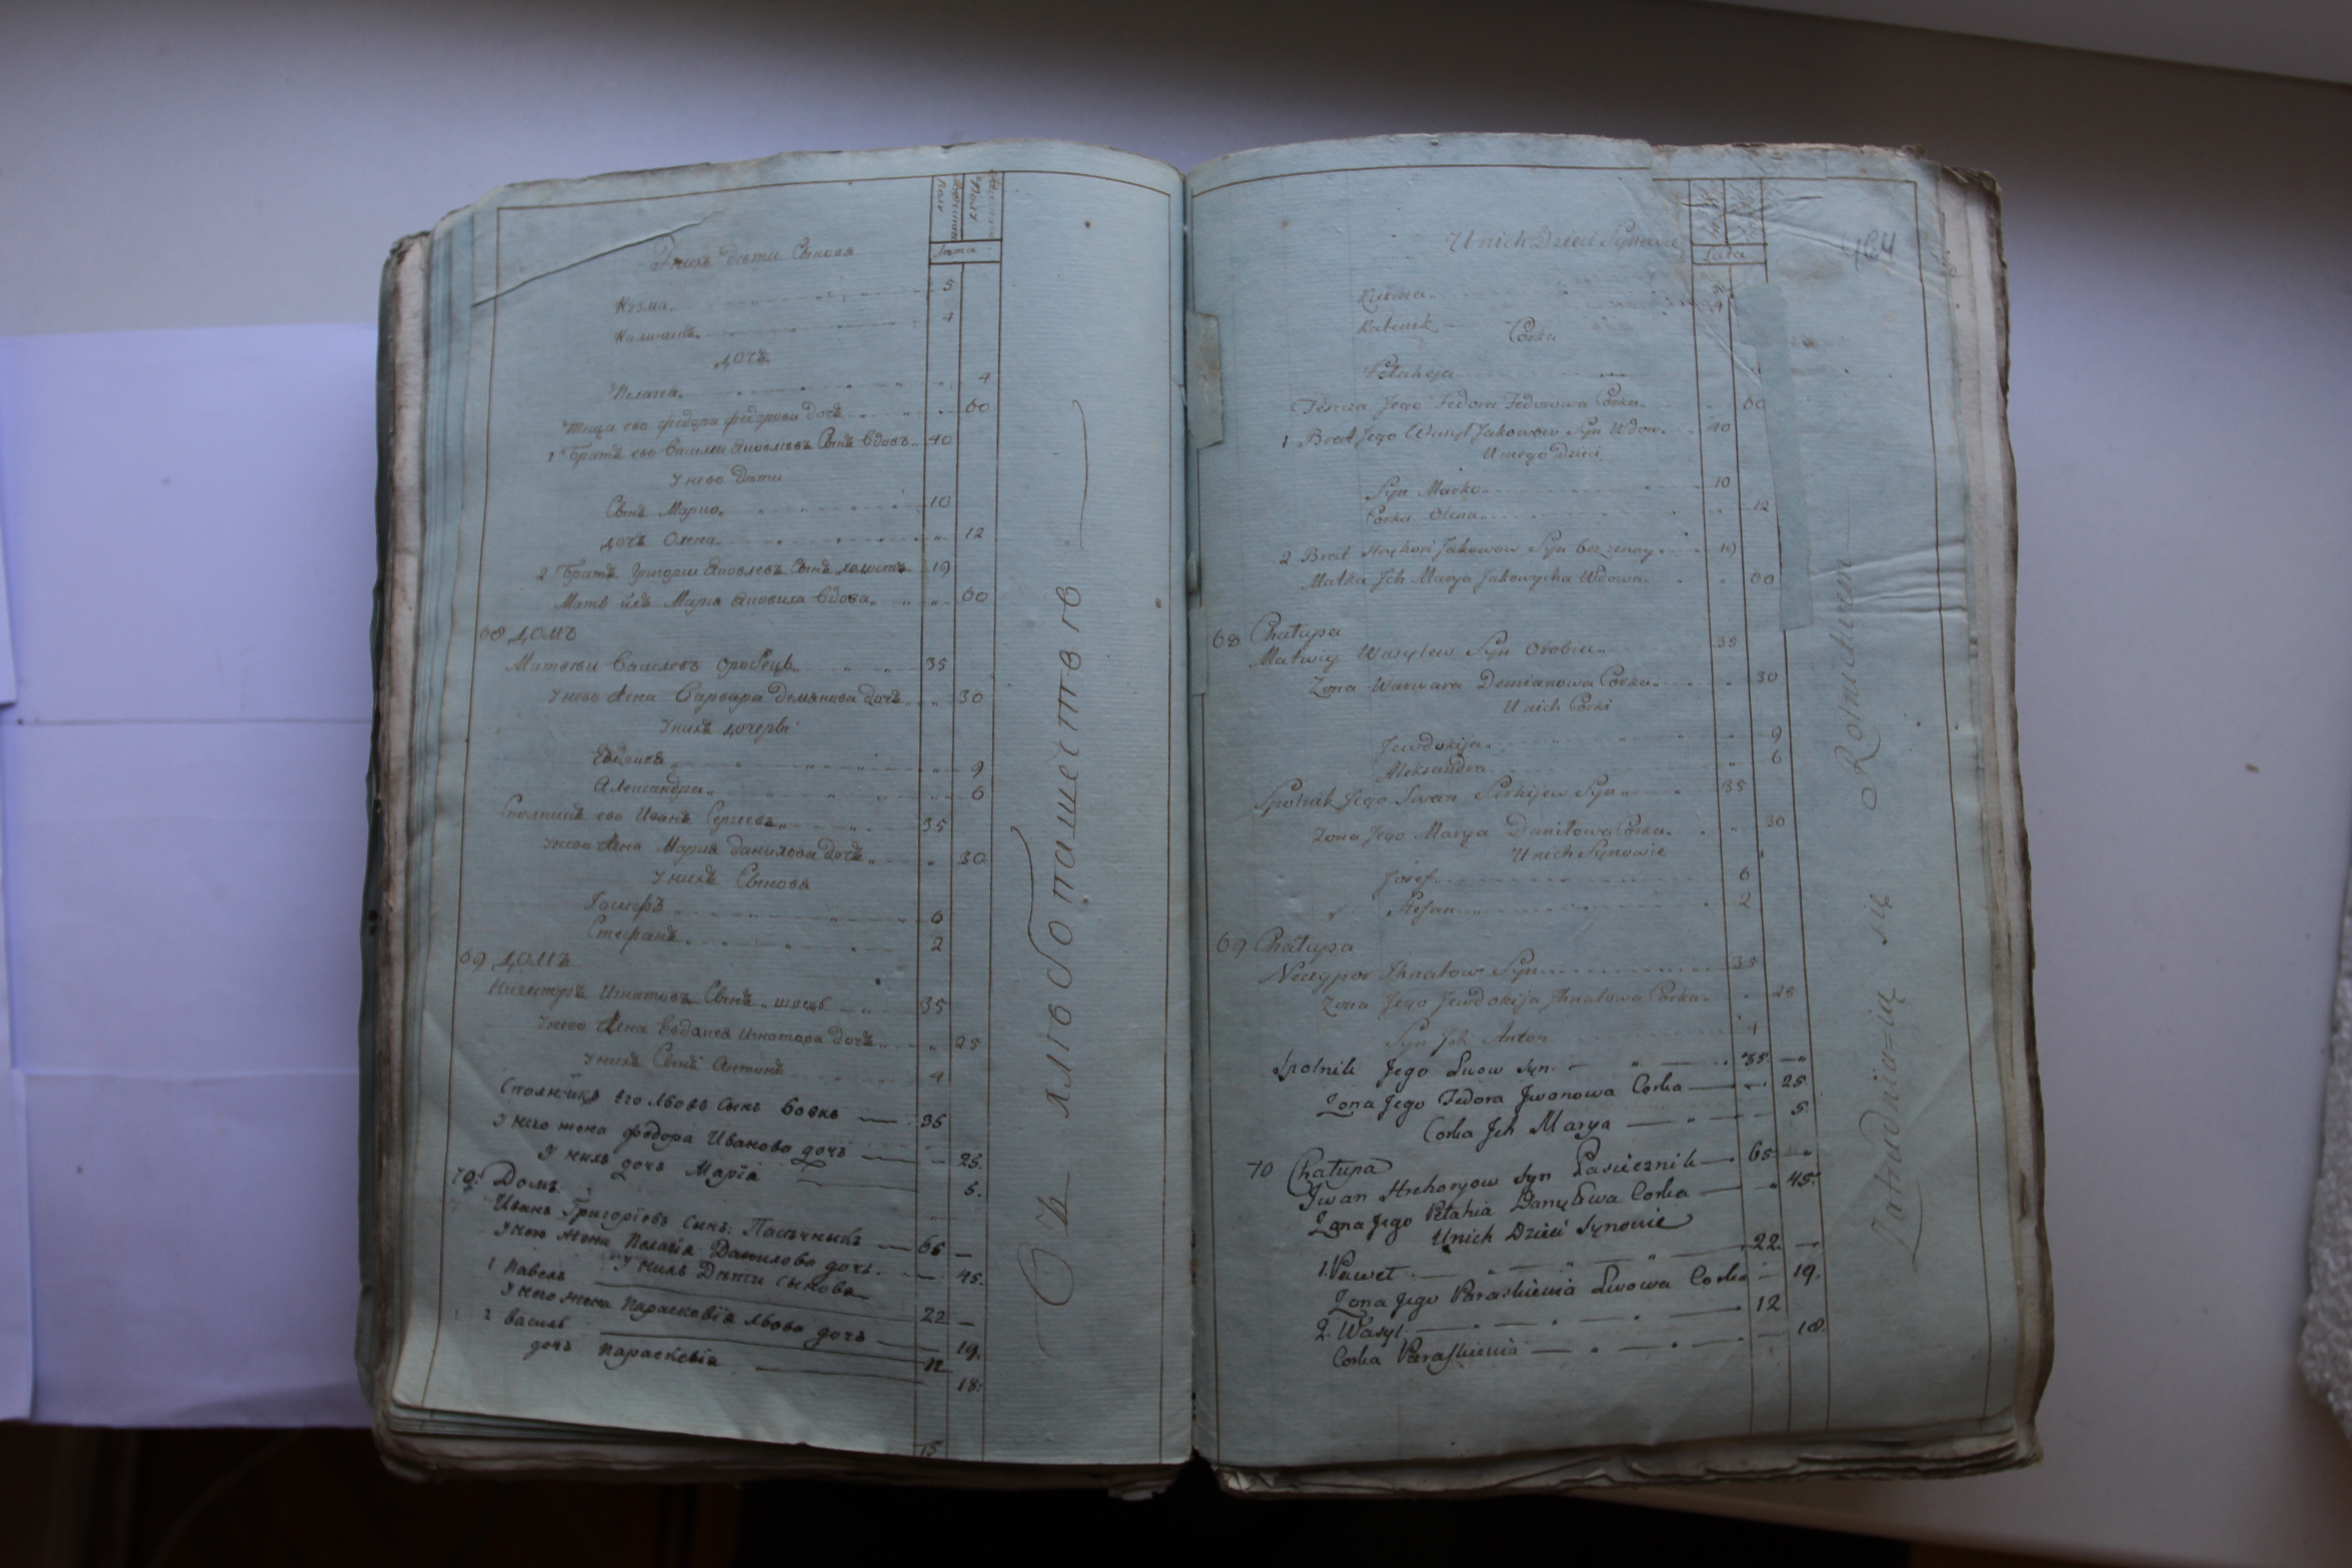 У нихъ дѣти Сынова
Лѣта
Кузма 5
Калиникъ 4
дочь
Пелагея 4
Теща ево федора федорова дочь 60
1 Братъ ево Василий Яковлевъ Сынъ вдовъ 40
У нево дѣти
Сынъ Марко 10
дочь Олена 12
2 Братъ Григорий Яковлевъ Сынъ холостъ 19
Мать ихъ Мария Яковиха вдова 60
68 домъ
Матвей Василевъ Оробецъ 35
У нево жена Варвара Демянова дочь 30
У нихъ дочери
Евдокия 9
Александра 6
Сполникъ ево Иванъ Сергеевъ 35
У нево жена Мария Данилова дочь 30
У нихъ Сынова
Иосифъ 6
Стефанъ 2
69 домъ
Ничипоръ Игнатовъ Сынъ 35
У нево жена Евдокия Игнатова дочь 25
У нихъ Сынъ Антонъ 4
Сполникъ его Львовъ Сынъ Вовкъ 35
У него жена федора Иванова дочь 25.
У нихъ дочь Марїя 5.
70. Домъ
Иванъ Григорїевъ Сынъ: Пасѣчникъ 65
У него жена Пелагїя Данилова дочь 45.
У нихъ Дѣти Сынова
1 Павелъ 22
У него жена Параскевїя Львова дочь 19.
2 Василь 12
дочь Параскевїа 18.
15
хлѣбопашествов
U nich Dzieci Synowie
464
Lata
Kuzma
Kalenik 4
Corka
Pelaheja
Teszcza Jego Fedora Fedorowa Corka 60
1 Brat Jego Wasyl Jakowow Syn Wdow. 40
U niego Dzieci
Syn Marko 10
Corka Olena 12
2 Brat Hryhori Jakowow Syn bezzenny 19
Matka Jch Marya Jakowycha Wdowa 60
68 Chałupa
Matwiy Wasylew Syn Orobiec 35
Zona Warwara Demianowa Corka 30
U nich Corki
Jewdokija 9
Aleksandra 6
Spolnik Jego Iwan Serhijew Syn 35
Zona Jego Marya Daniłowa Corka 30
U nich Synowie
Jozef 6
Stefan 2
69 Chałupa
Neczypor Jhnatow Syn 35
Zona Jego Jewdokija Jhnatowa Corka 25
Syn Jch Anton 4
Spolnik Jego Lwow Syn 35.
Zona Jego Fedora Jwanowa Corka 25.
Corka Jch Marya 5.
70 Chałupa
Jwan Hrehoryow Syn Pasiecznik 65
Zona Jego Pelahia Danyłowa Corka 45.
U nich Dzieci Synowie
1. Paweł 22.
Zona Jego Paraskiewia Lwowa Corka 19.
2. Wasyl 12
Corka Paraskiewia 18.
Zatrudnia=ią się Rolnictwem